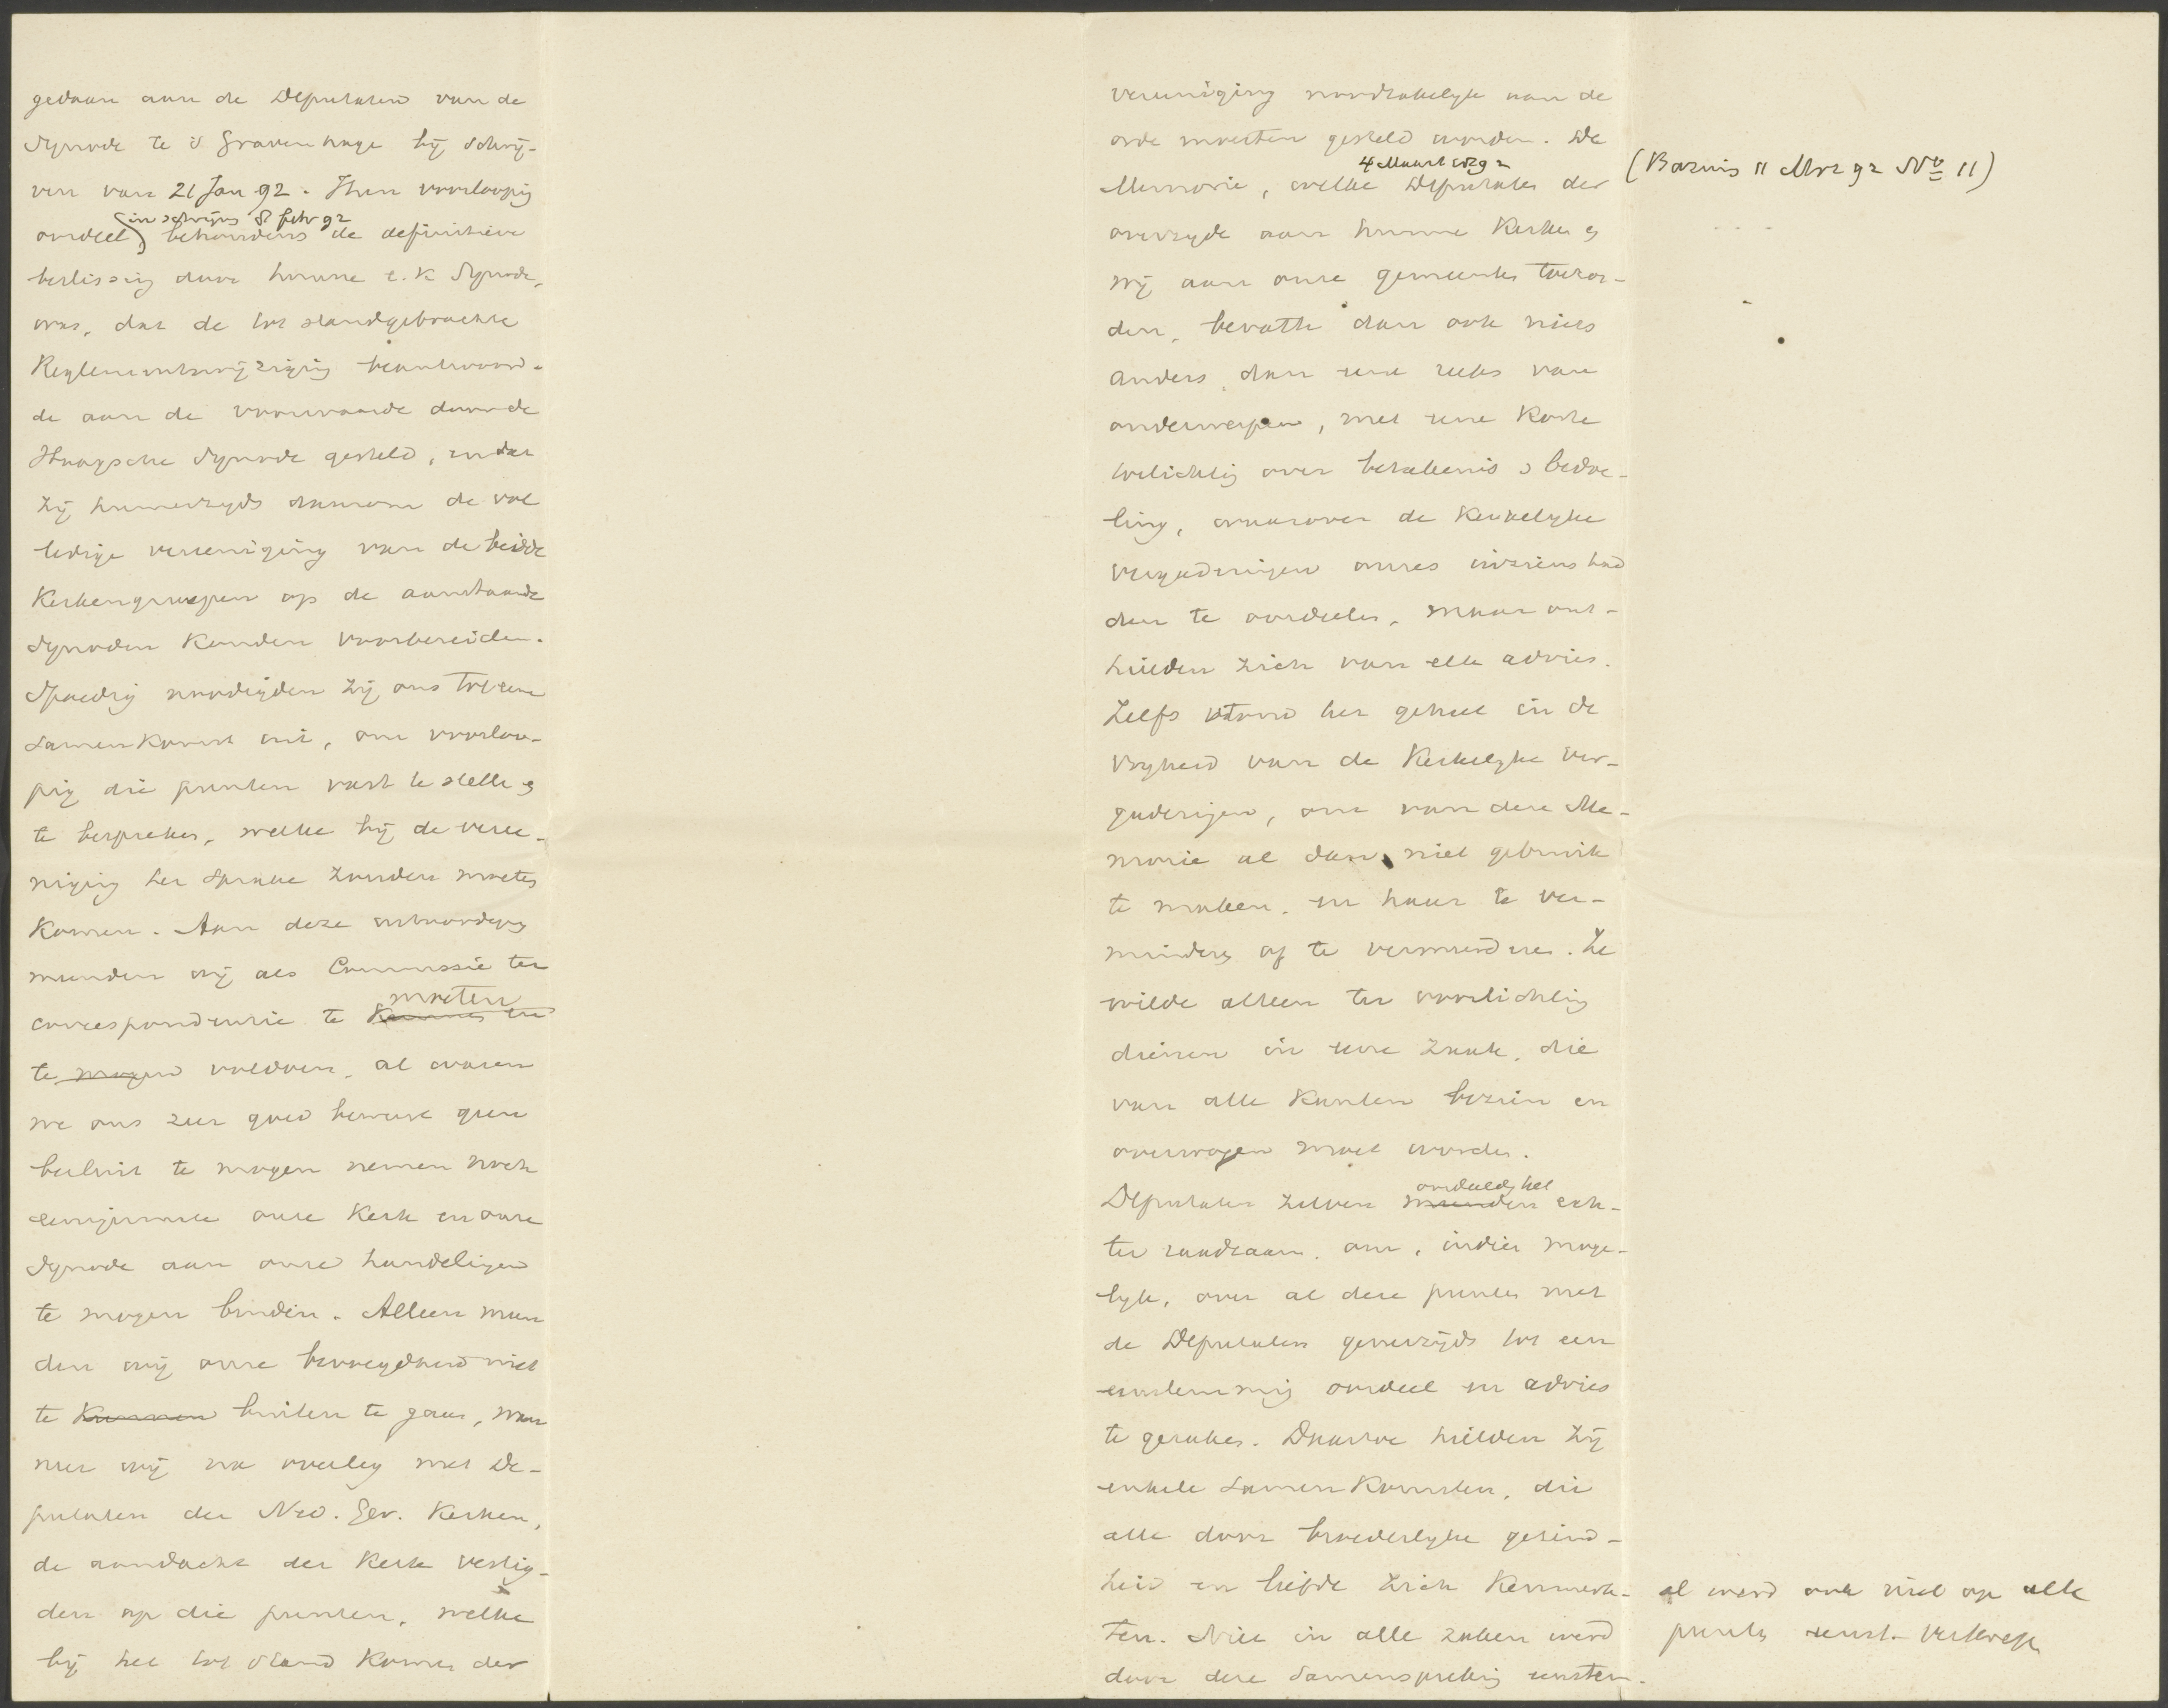 gedaan aan de Deputaten van de
Synode te 's Gravenhage bij schrij-
ven van 21 Jan 92. Hun voorloopig
(in schrijven 8 febr 92
oordeel) behoudens de definitieve
beslissing door hunne e.k. Synode,
was, dat de tot standgebrachte
Reglementswijziging beantwoord-
de aan de voorwaarde door de
Haagsche Synode gesteld, en dat
zij hunnerzijds daarom de vol
ledige vereeniging van de beide
Kerkengroepen op de aanstaande
Synoden konden voorbereiden.
Spoedig noodigden zij ons tot eene
samenkomst uit, om voorloo-
pig die punten vast te stellen en
te bespreken, welke bij de veree-
niging ter sprake zouden moeten
komen. Aan deze uitnoodiging
meenden wij als Commissie ter
moeten
correspondentie te kunnen en
te mogen voldoen, al waren
we ons zeer goed bewust geen
besluit te mogen nemen noch
eenigermate onze Kerk en onze
Synode aan onze handelingen
te mogen binden. Alleen meen
den wij onze bevoegdheid niet
te kunnen buiten te gaan, wan
neer wij na overleg met De-
putaten der Ned. Ger. Kerken,
de aandacht der Kerk vestig-
den op die punten, welke
bij het tot stand komen der
vereeniging noodzakelijk aan de
orde moesten gesteld worden. De
4 Maart 1892
Memorie, welke Deputaten der
(Bazuin 11 Mrz 92 No 11)
overzijde aan hunne Kerken en
wij aan onze gemeenten toezon-
den, bevatte dan ook niets
anders, dan eene reeks van
onderwerpen, met eene korte
toelichting over beteekenis en bedoe-
ling, waarover de Kerkelijke
vergaderingen onzes inziens had
den te oordeelen, maar ont-
hielden zich van elk advies.
Zelfs stond het geheel in de
vrijheid van de Kerkelijke ver-
gaderingen, om van deze Me-
morie al dan niet gebruik
te maken, en haar te ver-
minderen of te vermeerderen. Ze
wilde alleen ter voorlichting
dienen in eene zaak, die
van alle kanten bezien en
overwogen moet worden.
oordeelden het
Deputaten zelven meenden ech-
ter raadzaam, om, indien moge-
lijk, over al deze punten met
de Deputaten generzijds tot een
eenstemmig oordeel en advies
te geraken. Daartoe hielden zij
enkele samenkomsten, die
alle door broederlijke gezind-
heid en liefde zich kenmerk-
ten. Niet in alle zaken werd
door deze samenspreking eenstem-
al werd ook niet op alle
punten eenst. verkregen